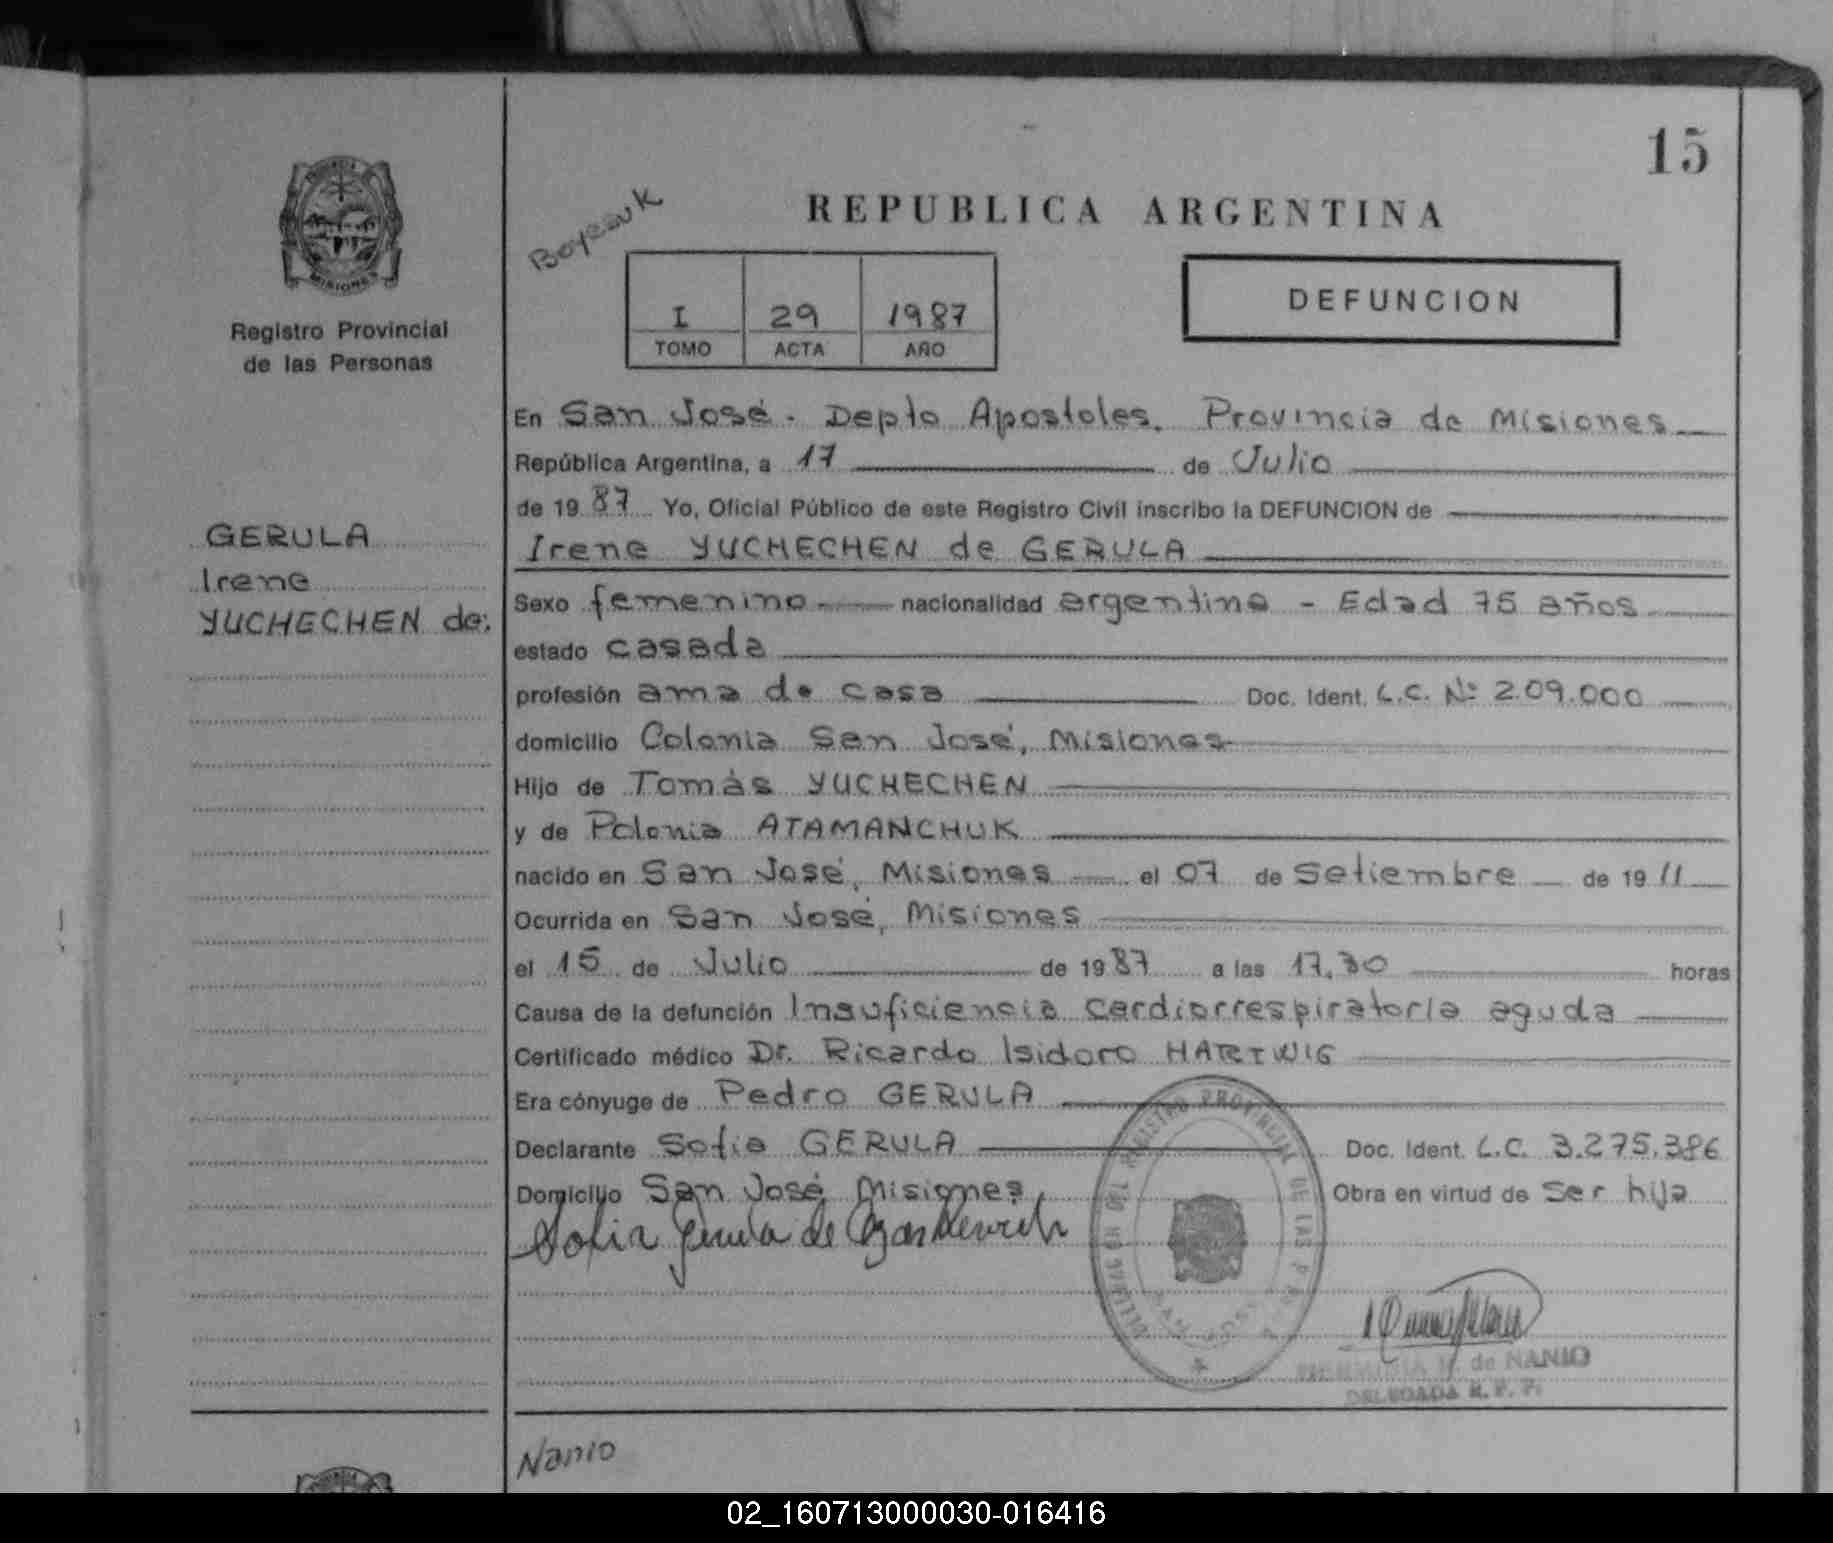 15
REPUBLICA ARGENTINA
MISIONES
Registro Provincial
de las Personas
I 29 1987
TOMO ACTA AÑO
DEFUNCION
GERULA
Irene
YUCHECHEN de:
En San José - Depto Apostoles. Provincia de Misiones
República Argentina, a 17 de Julio
de 1987 Yo, Oficial Público de este Registro Civil inscribo la DEFUNCION de
Irene YUCHECHEN de GERULA
Sexo femenino nacionalidad argentina - Edad 75 años
estado casada
profesión ama de casa Doc. Ident. L.C. Nº 2.09.000
domicilio Colonia San José, Misiones
Hijo de Tomás YUCHECHEN
y de Polonia ATAMANCHUK
nacido en San José, Misiones el 07 de Setiembre de 1911
Ocurrida en San José, Misiones
el 15 de Julio de 1987 a las 17,30 horas
Causa de la defunción Insuficiencia cardiorrespiratoria aguda
Certificado médico Dr. Ricardo Isidoro HARTWIG
Era cónyuge de Pedro GERULA
Declarante Sofia GERULA Doc. Ident. L.C. 3.275.386
Domicilio San José, Misiones, Obra en virtud de ser hija
Sofia Gerula de
REGISTRO PROVINCIAL DE LAS
SAN JOSE
de NANIO
DELEGADA R. P. P.
Nanio
02_160713000030-016416